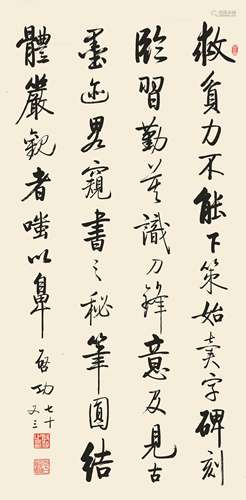 救貧力不能下策始賣字碑刻
臨習勤莫識刀鋒意及見古
墨迹略窺書之秘筆圓結
體嚴觀者嗤以鼻 啟功 七十又三